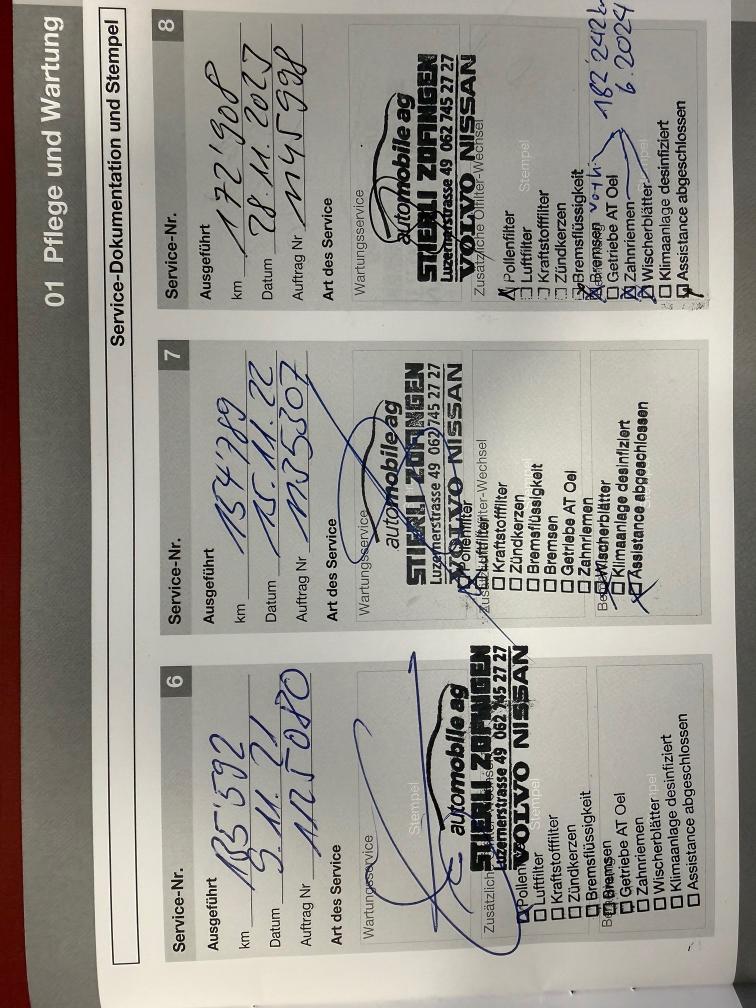 01 Pflege und Wartung
Service-Dokumentation und Stempel
Service-Nr. 6
Ausgeführt
km 135'592
Datum 9.11.21
Auftrag Nr 1125080
Art des Service
Wartungsservice
Stempel
automobile ag
STIERLI ZOFINGEN
Luzernerstrasse 49 062 745 27 27
VOLVO NISSAN
Zusätzliche
Stempel
Luftfilter
Kraftstofffilter
Zündkerzen
Bremsflüssigkeit
Bremsen
Getriebe AT Oel
Zahnriemen
Wischerblätter
Klimaanlage desinfiziert
Assistance abgeschlossen
Service-Nr. 7
Ausgeführt
km 154'789
Datum 15.11.22
Auftrag Nr 1135307
Art des Service
Wartungsservice
automobile ag
STIERLI ZOFINGEN
Luzernerstrasse 49 062 745 27 27
VOLVO NISSAN
Pollenfilter
Luftfilter
Kraftstofffilter
Zündkerzen
Bremsflüssigkeit
Bremsen
Getriebe AT Oel
Zahnriemen
Wischerblätter
Klimaanlage desinfiziert
Assistance abgeschlossen
Service-Nr. 8
Ausgeführt
km 172'908
Datum 28.11.2023
Auftrag Nr 1145998
Art des Service
Wartungsservice
automobile ag
STIERLI ZOFINGEN
Luzernerstrasse 49 062 745 27 27
VOLVO NISSAN
Zusätzliche Ölfilter-Wechsel
Stempel
Pollenfilter
Luftfilter
Kraftstofffilter
Zündkerzen
Bremsflüssigkeit
Bremsen
Getriebe AT Oel
Zahnriemen
Wischerblätter
Klimaanlage desinfiziert
Assistance abgeschlossen
182'242
6.2024